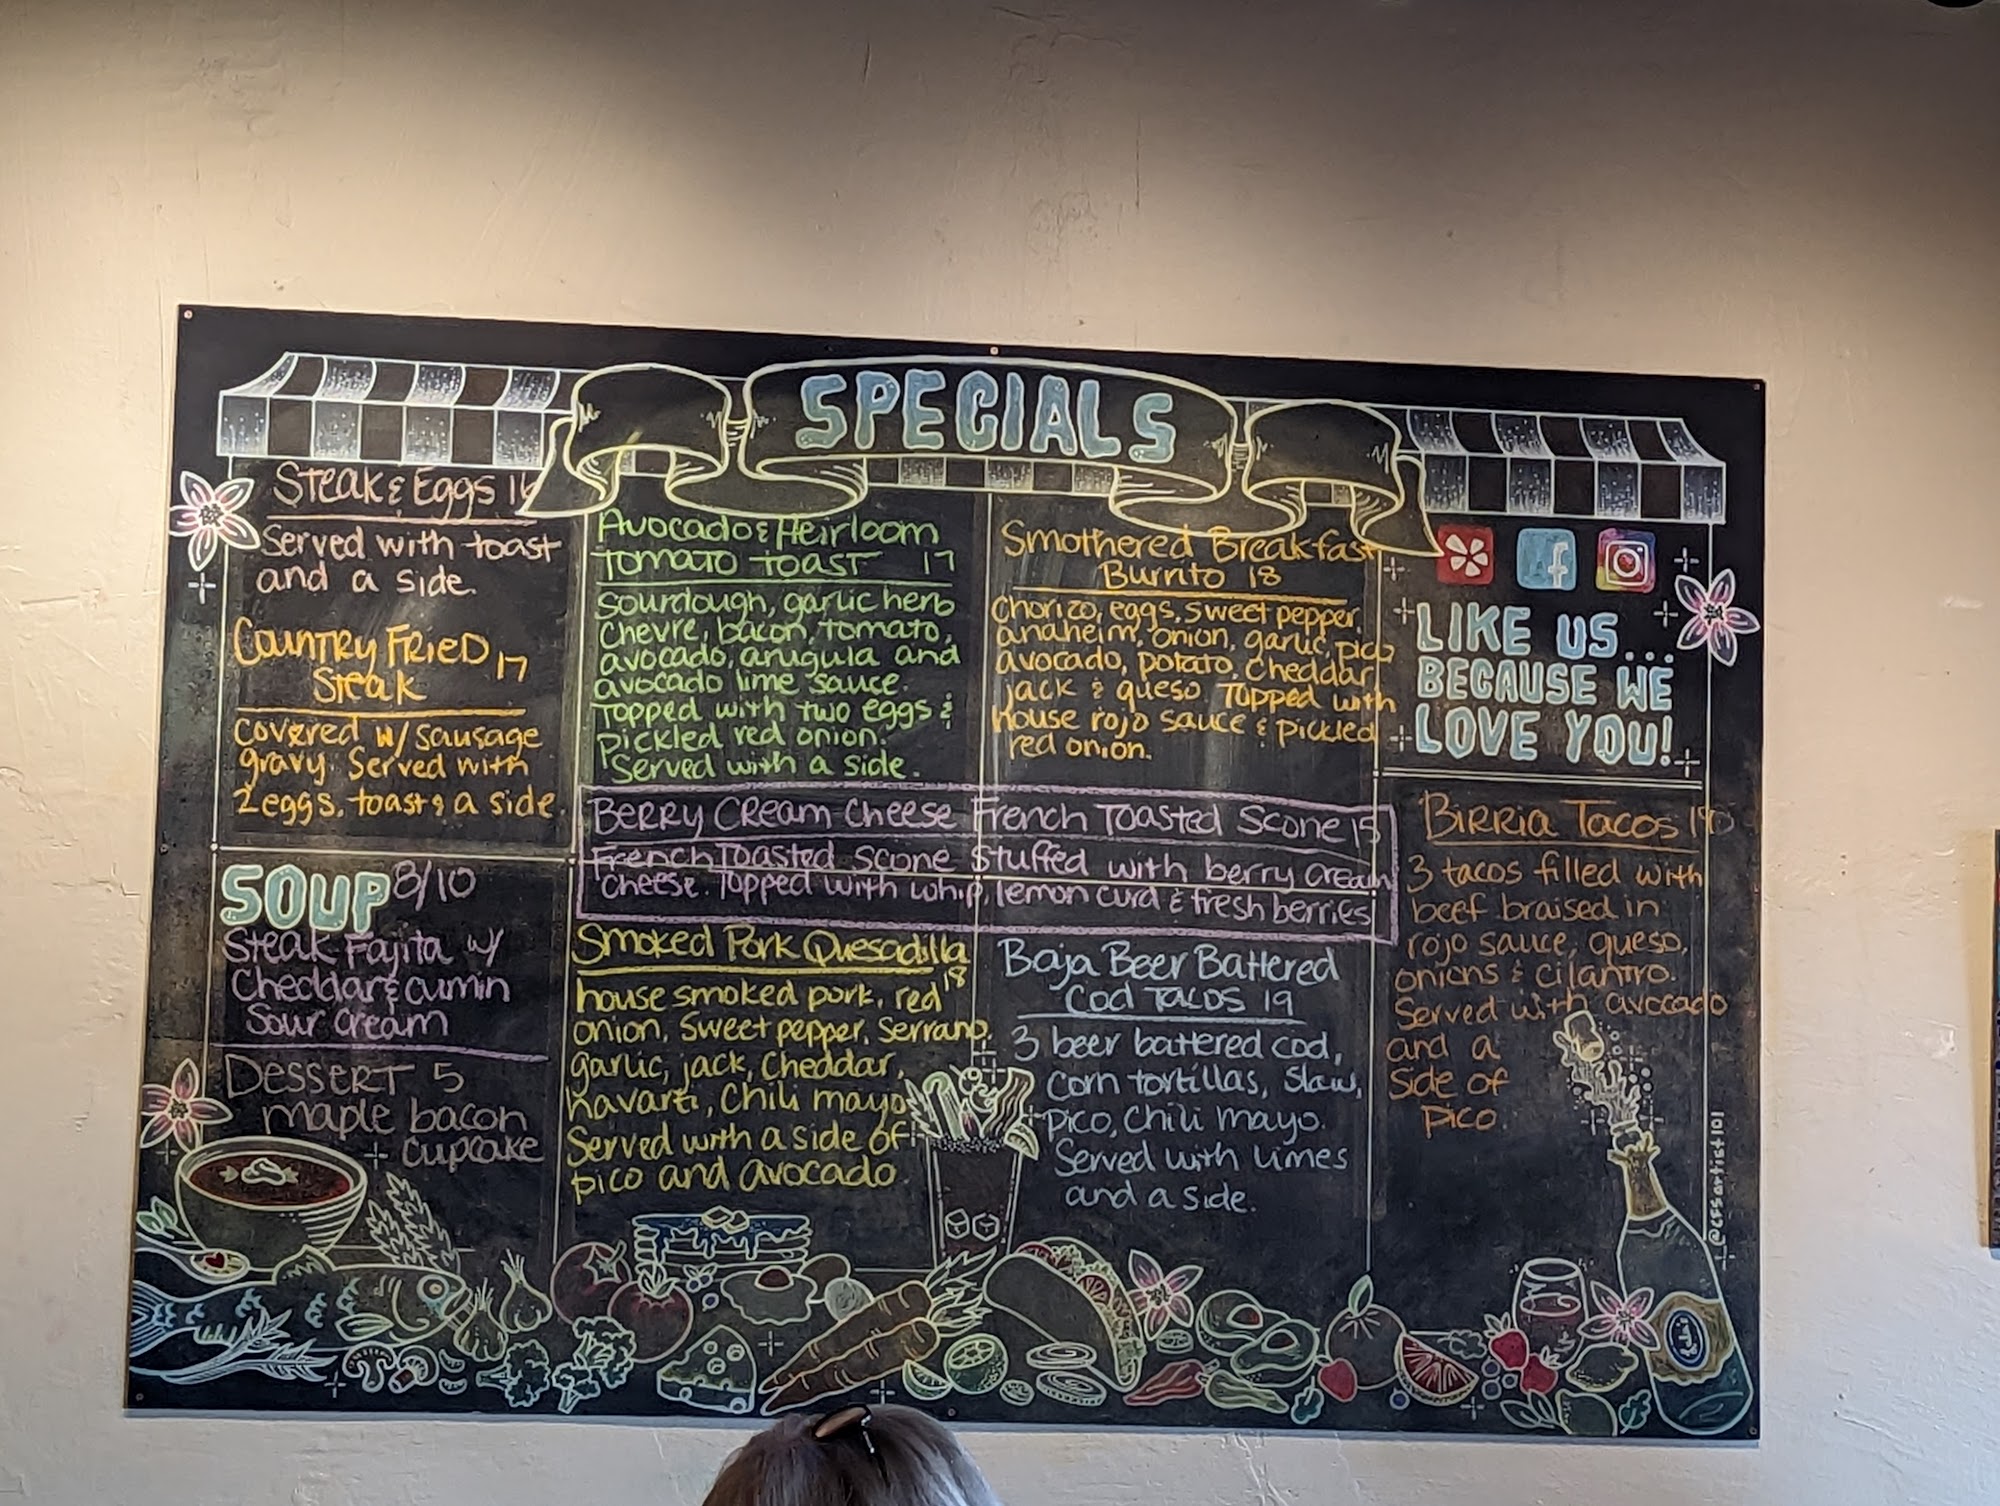 SPECIALS
Steak & Eggs 16
Served with toast
and a side.
Country Fried 17
Steak
covered w/ sausage
gravy. Served with
2 eggs, toast & a side.
SOUP 8/10
Steak Fajita w/
Cheddar & cumin
Sour cream
Dessert 5
maple bacon
cupcake
Avocado & Heirloom
Tomato Toast 17
sourdough, garlic herb
chevre, bacon, tomato,
avocado, arugula and
avocado lime sauce.
Topped with two eggs &
pickled red onion.
Served with a side.
Smothered Breakfast
Burrito 18
chorizo, eggs, sweet pepper,
anaheim, onion, garlic, pico
avocado, potato, cheddar,
jack & queso. Topped with
house rojo sauce & pickled
red onion.
Berry Cream Cheese French Toasted Scone 15
French Toasted Scone Stuffed with berry cream
cheese. Topped with whip, lemon curd & fresh berries
Smoked Pork Quesadilla
18
house smoked pork, red
onion, sweet pepper, serrano,
garlic, jack, cheddar,
havarti, chili mayo
Served with a side of
pico and avocado.
Baja Beer Battered
Cod Tacos 19
3 beer battered cod,
corn tortillas, slaw,
pico, chili mayo.
Served with limes
and a side.
LIKE US...
BECAUSE WE
LOVE YOU!
Birria Tacos
3 tacos filled with
beef braised in
rojo sauce, queso,
onions & cilantro.
Served with avocado
and a
side of
pico.
@cfsartist101